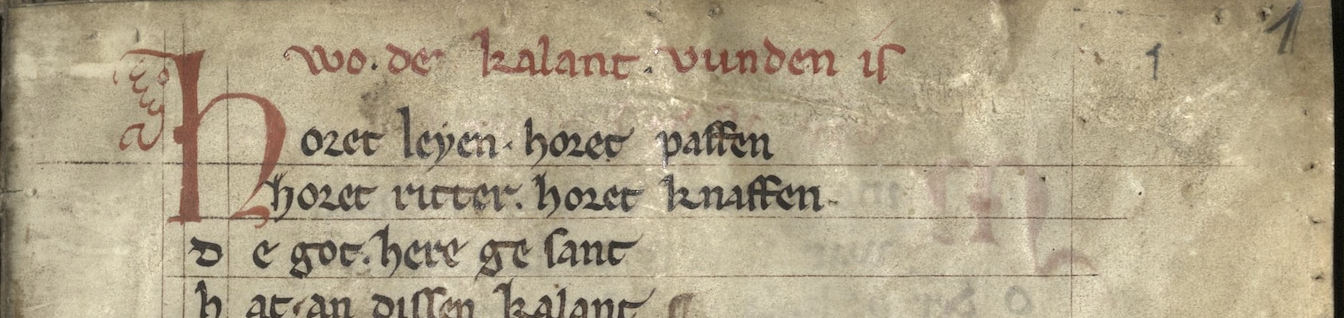 1
wo. de kalant. vunden is
1
Horet leyen. horet paffen
horet ritter. horet knaffen.
d e got. here ge sant
h at. an dissen kalant